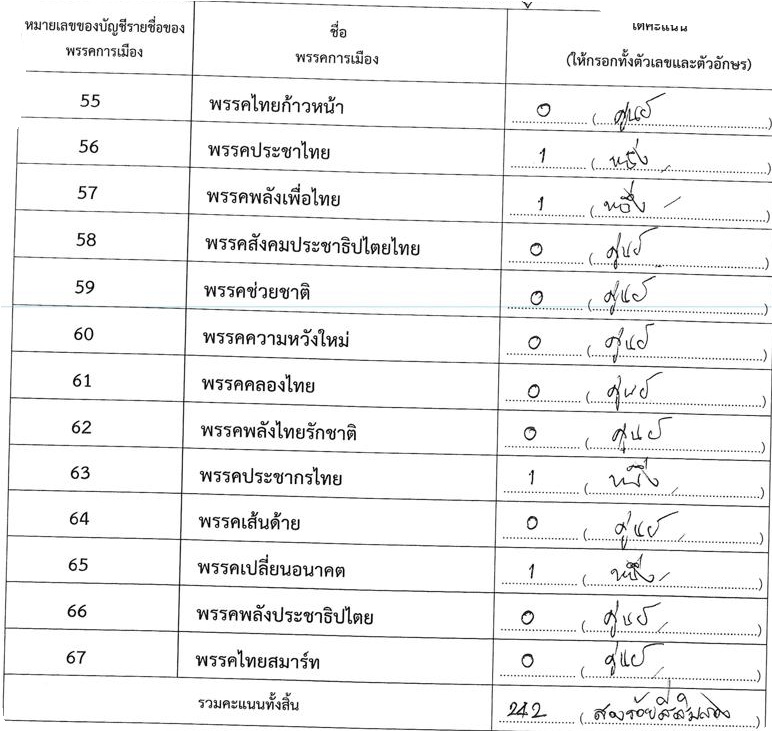 หมายเลขของบัญชีรายชื่อของ
พรรคการเมือง
ชื่อ
พรรคการเมือง
ได้คะแนน
(ให้กรอกทั้งตัวเลขและตัวอักษร)
55 พรรคไทยก้าวหน้า 0 (ศูนย์)
56 พรรคประชาไทย 1 (หนึ่ง)
57 พรรคพลังเพื่อไทย 1 (หนึ่ง)
58 พรรคสังคมประชาธิปไตยไทย 0 (ศูนย์)
59 พรรคช่วยชาติ 0 (ศูนย์)
60 พรรคความหวังใหม่ 0 (ศูนย์)
61 พรรคคลองไทย 0 (ศูนย์)
62 พรรคพลังไทยรักชาติ 0 (ศูนย์)
63 พรรคประชากรไทย 1 (หนึ่ง)
64 พรรคเส้นด้าย 0 (ศูนย์)
65 พรรคเปลี่ยนอนาคต 1 (หนึ่ง)
66 พรรคพลังประชาธิปไตย 0 (ศูนย์)
67 พรรคไทยสมาร์ท 0 (ศูนย์)
รวมคะแนนทั้งสิ้น 242 (สองร้อยสี่สิบสอง)